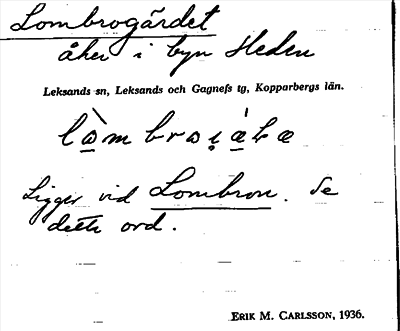 Lombrogärdet
åker i byn Heden
Leksands sn, Leksands och Gagnefs tg, Kopparbergs län.
Ligger vid Lombron. Se
detta ord.
ERIK M. CARLSSON, 1936.